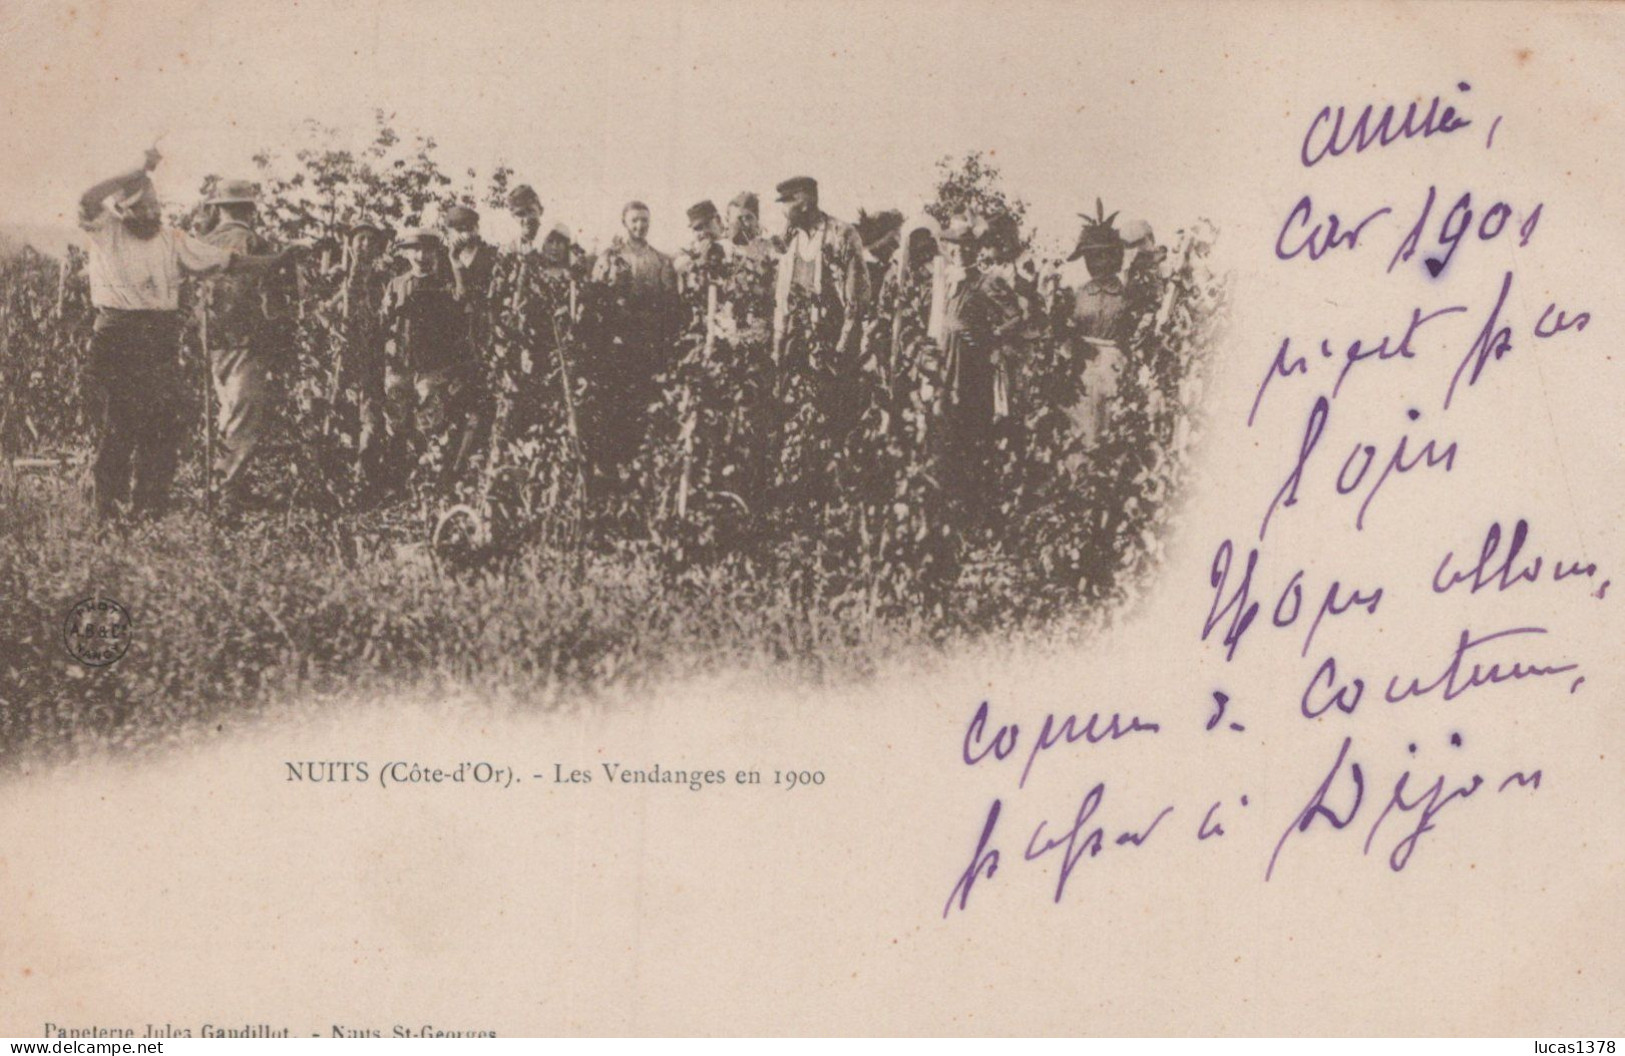 année,
car 1901
n'est pas
loin
Nous allons,
comme de coutume,
passer à Dijon
PHOT
A.B & Cie
NANCY
NUITS (Côte-d'Or). - Les Vendanges en 1900
Papeterie Jules Gaudillot. - Nuits St-Georges
delcampe.net
lucas1378